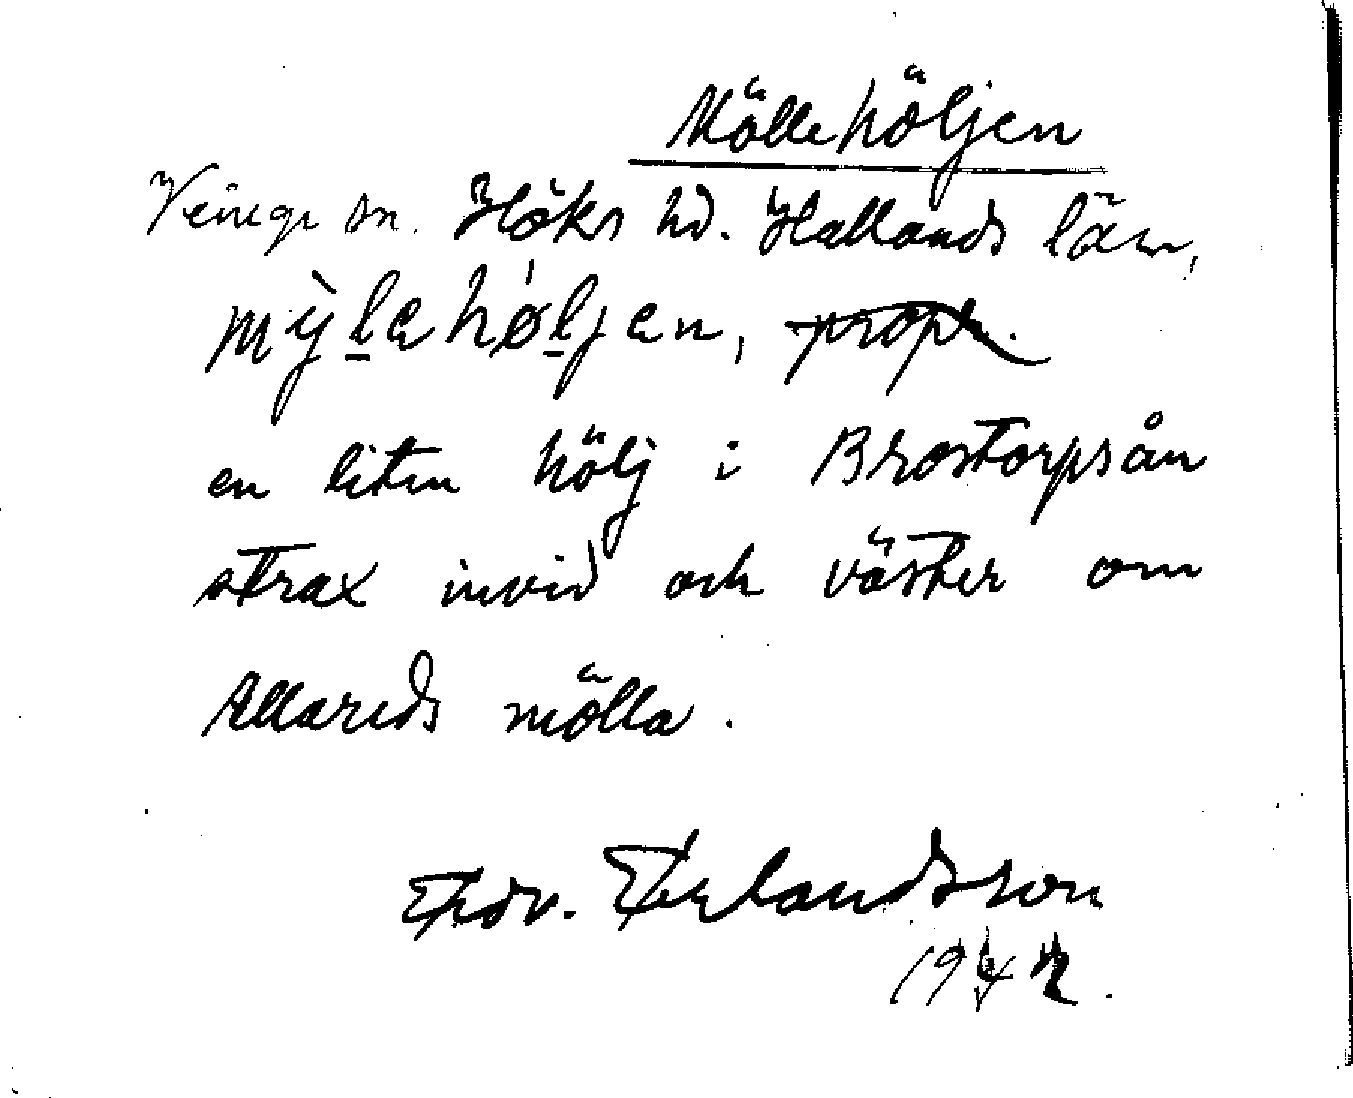 Möllehöljen
Veinge sn. Höks hd. Hallands län,
mỳlehǿljen,
en liten hölj i Brostorpsån
strax invid och väster om
Allareds mölla.
Edv. Erlandsson
1942.